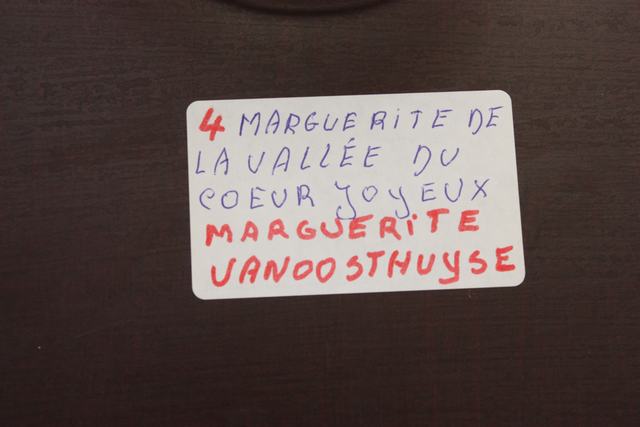 4 MARGUERITE DE
LA VALLÉE DU
COEUR JOYEUX
MARGUERITE
VANOOSTHUYSE